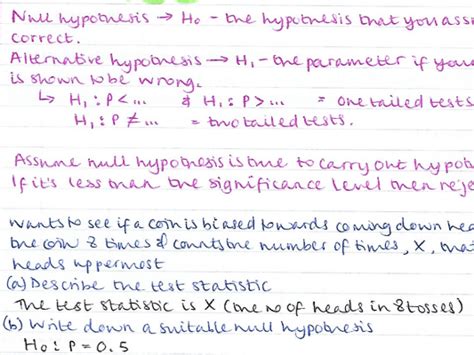 Null hypothesis → H₀ - the hypothesis that you ass
correct.
Alternative hypothesis → H₁ - the parameter if your
is shown to be wrong.
↳ H₁ : P < ... & H₁ : P > ... = one tailed tests
H₁ : P ≠ ... = two tailed tests.
Assume null hypothesis is true to carry out hypoth
If it's less than the significance level then reje
wants to see if a coin is biased towards coming down hea
the coin 8 times & counts the number of times, X, tha
heads uppermost
(a) Describe the test statistic
The test statistic is X (the no of heads in 8 tosses)
(b) Write down a suitable null hypothesis
H₀ : P = 0.5